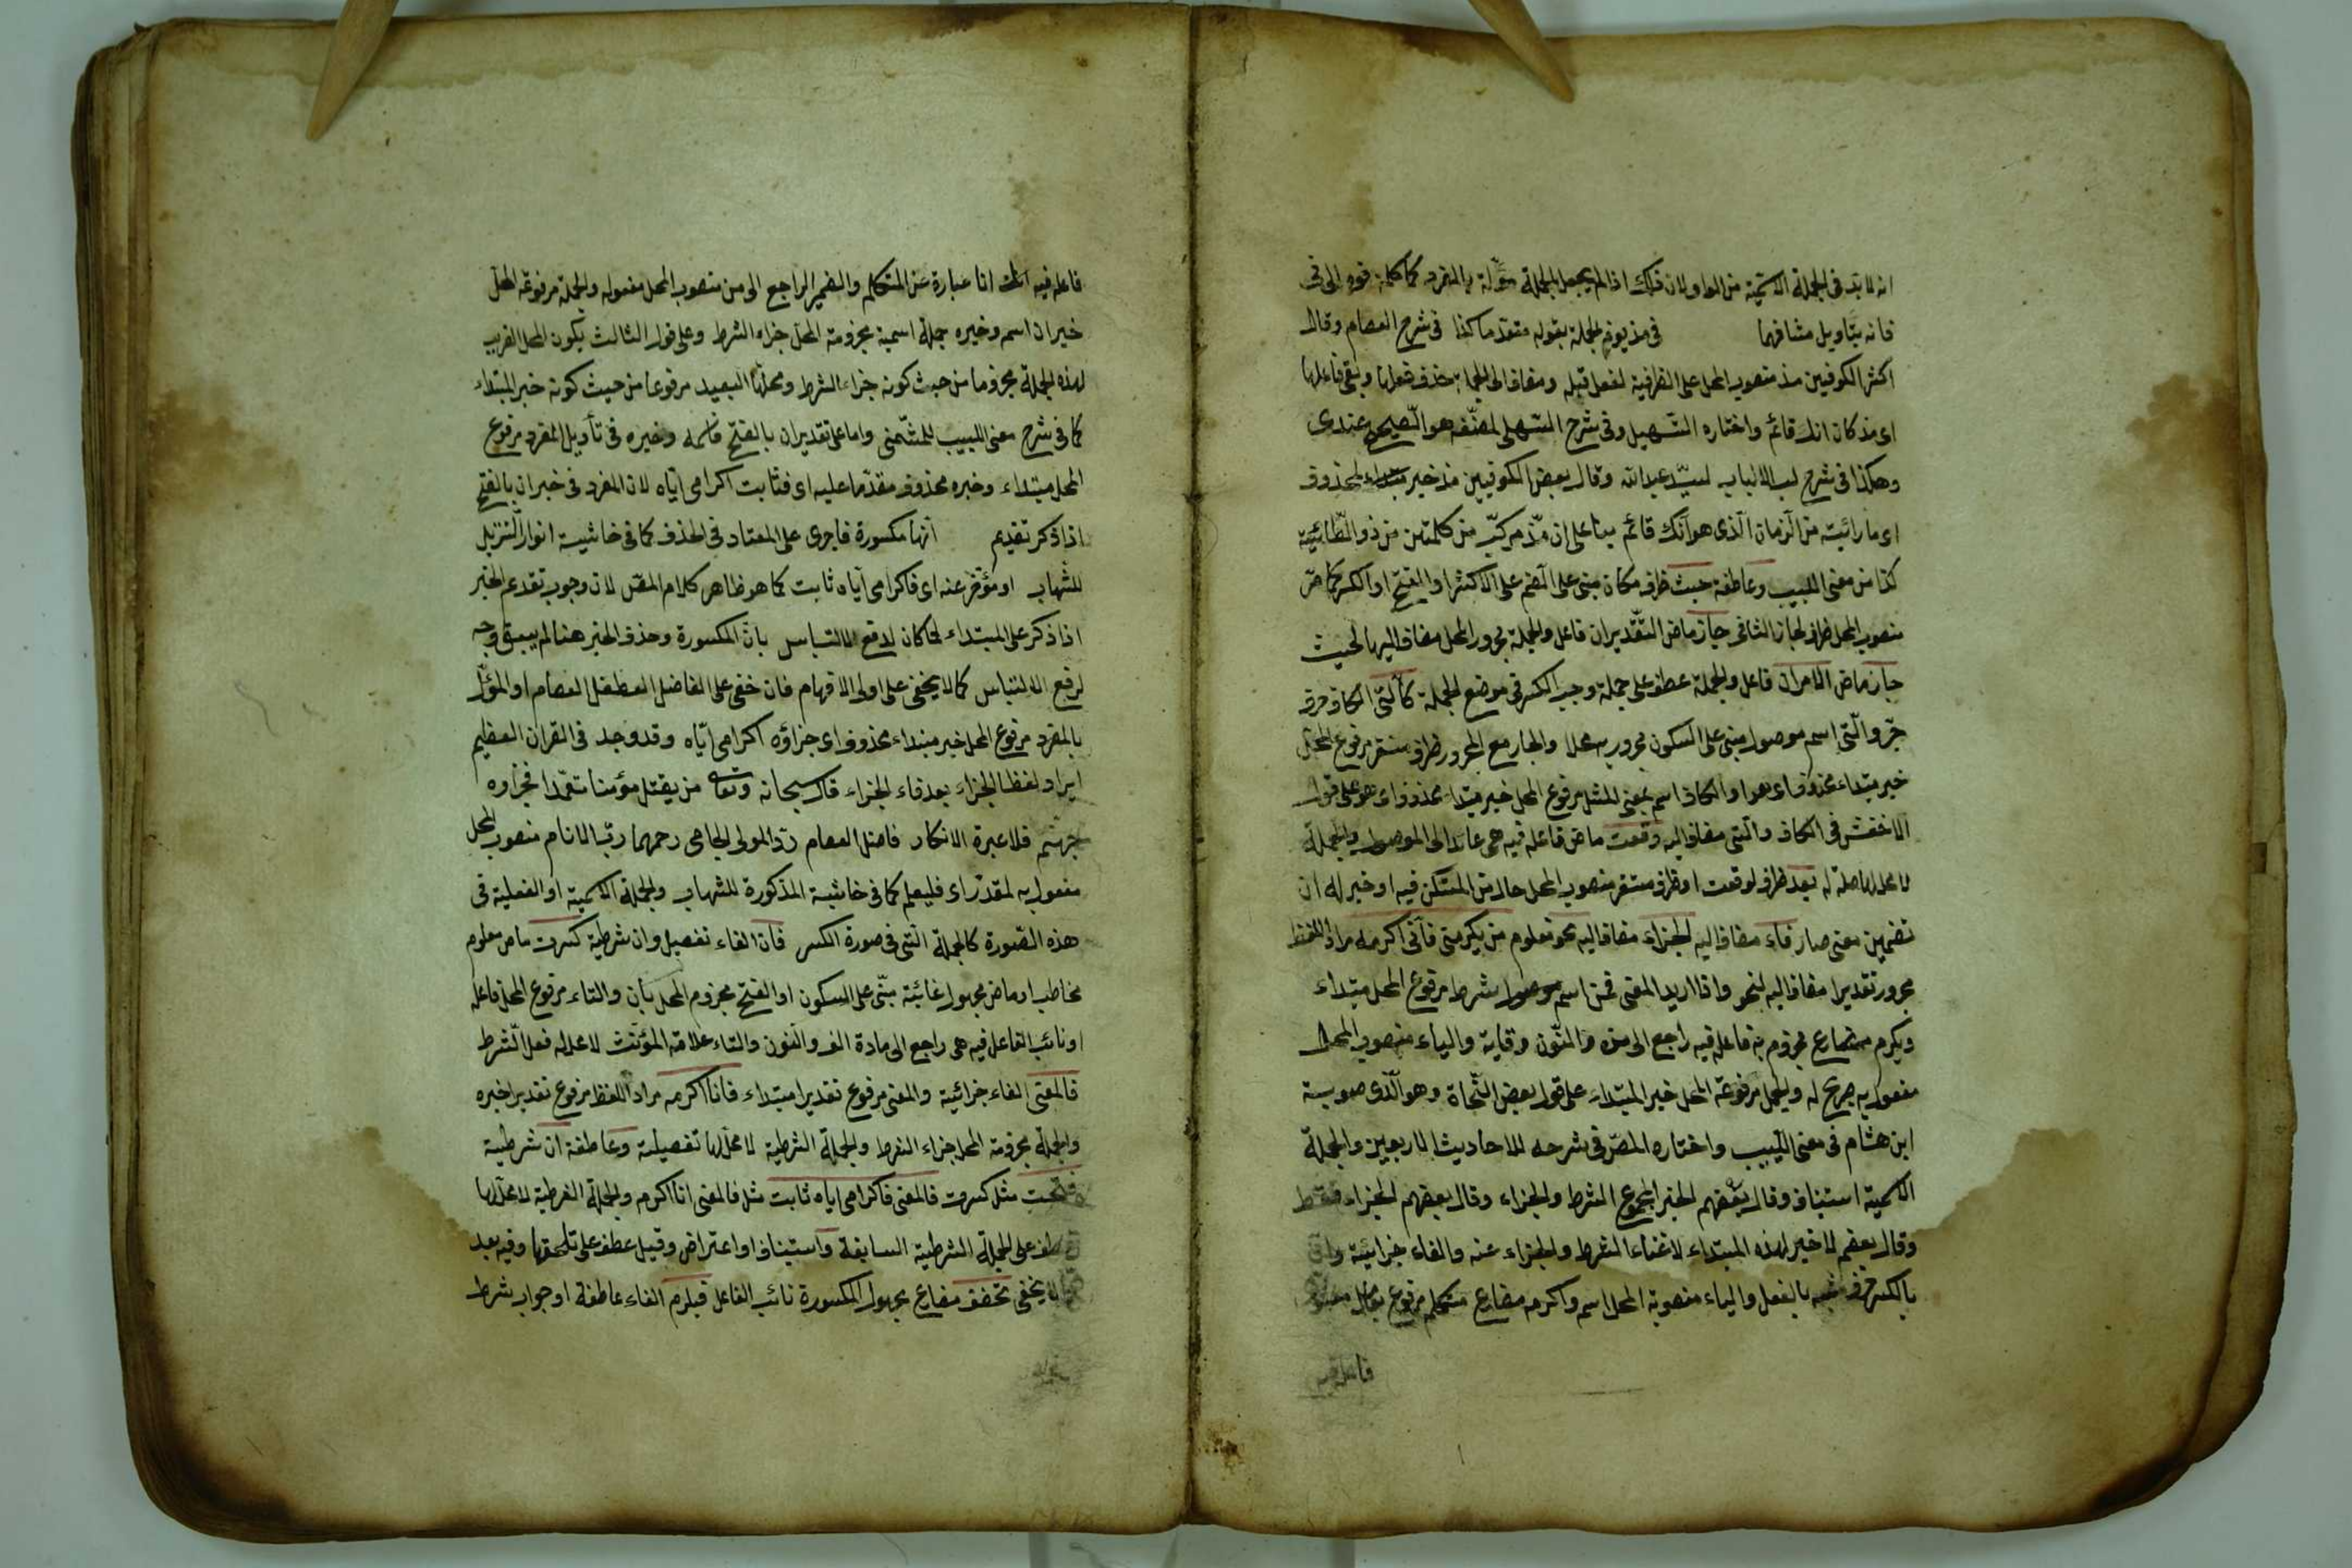 انه لابد فى الجملة الاسمية من الواو ولان ذلك اذا لم يجعل الجملة مؤلة بالمفرد كما كلمة فوه الى فى
فانه بتاويل مشافها فى مذ يوم لجملة بقوله متقدما كذا فى شرح العصام وقال
اكثر الكوفيين مذ منصوب المحل على الظرفية لفعل قبله ومضاف الى الجملة حذف فعلها وبقى فاعلها
اى مذ كان انك قائم واختاره التسهيل وفى شرح التسهيل لمصنفه هو الصحيح عندى
وهكذا فى شرح لب الالباب لسيد عبدالله وقال بعض الكوفيين مذ خبر مبتداء محذوف
اى ما رائيته من الزمان الذى هو انك قائم بناء على ان مذ مركب من كلمتين من ذو الطائية
كذا من مغنى اللبيب وعاطفة حيث ظرف مكان مبنى على الضم على الاكثر او الفتح او الكسر كما مر
منصوب المحل ظرف لجاز الثانى جاز ماض التقديران فاعل والجملة مجرور المحل مضاف اليها لحيث
جاز ماض الامران فاعل والجملة عطف على جملة وجب الكسر فى موضع الجملة كالتى الكاف حرف
جر والتى اسم موصول مبنى على السكون مجرور به محلا والجار مع المجرور ظرف مستقر مرفوع المحل
خبر مبتداء محذوف اى هو او الكاف اسم بمعنى المثل مرفوع المحل خبر مبتداء محذوف اى هو على قول
الاخفش فى الكاف والتى مضاف اليه وقعت ماض فاعله فيه هى عائد الى الموصول والجملة
لا محل لها صلة له بعد ظرف لوقعت او ظرف مستقر منصوب المحل حال من المستكن فيه او خبر له ان
تضمين معنى صار فاء مضاف اليه الجزاء مضاف اليه نحو معلوم من يكرمنى فانى اكرمه مراد اللفظ
مجرور تقديرا مضاف اليه لنحو واذا اريد المعنى فمن اسم موصول شرط مرفوع المحل مبتداء
ويكرم مضارع مجزوم به فاعله فيه راجع الى من والنون وقاية والياء منصوب المحل
مفعول به صريح له والجمل مرفوعة المحل خبر المبتداء على قول بعض النحاة وهو الذى صوبه
ابن هشام فى مغنى اللبيب واختاره المص فى شرحه للاحاديث الاربعين والجملة
الاسمية استيناف وقال بعضهم الخبر مجموع الشرط والجزاء وقال بعضهم الجزاء فقط
وقال بعضهم لا خبر لهذه المبتداء لاغناء الشرط والجزاء عنه والفاء جزائية وانى
بالكسر حرف مشبه بالفعل والياء منصوبة المحل اسم واكرمه مضارع متكلم مرفوع بعامل معنوى
فاعله فيه
فاعله فيه انا انا عبارة عن المتكلم والضمير الراجع الى من منصوب المحل مفعوله والجملة مرفوعة المحل
خبر ان اسم وخبره جملة اسمية مجزومة المحل جزاء الشرط وعلى قول الثالث يكون المحل القريب
لهذه الجملة مجزوما من حيث كونه جزاء الشرط ومحلها البعيد مرفوعا من حيث كونه خبر المبتداء
كما فى شرح مغنى اللبيب للشمنى واما على تقدير ان بالفتح فاسمه وخبره فى تأويل المفرد مرفوع
المحل مبتداء وخبره محذوف مقدما عليه اى فثابت اكرامى اياه لان المفرد فى خبر ان بالفتح
اذا ذكر تقديم انها مكسورة فاجرى على المعتاد فى الحذف كما فى حاشيه انوار التنزيل
للشهاب او مؤخر عنه اى فاكرامى اياه ثابت كما هو ظاهر كلام المص لان وجوب تقدم الخبر
اذا ذكر على المبتداء لما كان لدفع الالتباس بان المكسورة وحذف الخبر هنا لم يبق وجه
لرفع الالتباس كما لا يخفى على اولى الافهام فان خفى على الفاضل العصام او المؤل
بالمفرد مرفوع المحل خبر مبتداء محذوف اى جزاؤه اكرامى اياه وقد وجد فى القران العظيم
ايراد لفظ الجزاء بعد فاء الجزاء قال سبحانه وتعالى من يقتل مؤمنا متعمدا فجزاوه
جهنم فلا عبرة الانكار فاضل العصام رد المولى الجامى رحمهما رب الانام منصوب المحل
مفعول به لمقدر اى فليعلم كما فى حاشية المذكورة للشهاب والجملة الاسمية او الفعلية فى
هذه الصورة كالجملة التى فى صورة الكسر فان الفاء تفصيل وان شرطية كسرت ماض معلوم
مخاطب او ماض مجهول غائبة مبنى على السكون او الفتح مجزوم المحل بان والتاء مرفوع المحل فاعله
او نائب الفاعل فيه هى راجع الى مادة الف والنون والتاء علامة المؤنث لا محل له فعل الشرط
فالمعنى الفاء جزائية والمعنى مرفوع تقديرا مبتداء فانا اكرمه مراد اللفظ مرفوع تقديرا خبره
والجملة مجزومة المحل جزاء الشرط والجملة الشرطية لا محل لها تفصيلية وعاطفة ان شرطية
فتحت مثل كسرت فالمعنى فاكرامى اياه ثابت مثل فالمعنى انا اكرمه والجملة الشرطية لا محل لها
عطف على الجملة الشرطية السابقة واستيناف او اعتراض وقيل عطف على تلحقها وفيه بعد
لا يخفى تخفف مضارع مجهول المكسورة نائب الفاعل فيلزم الفاء عاطفة او جواب شرط